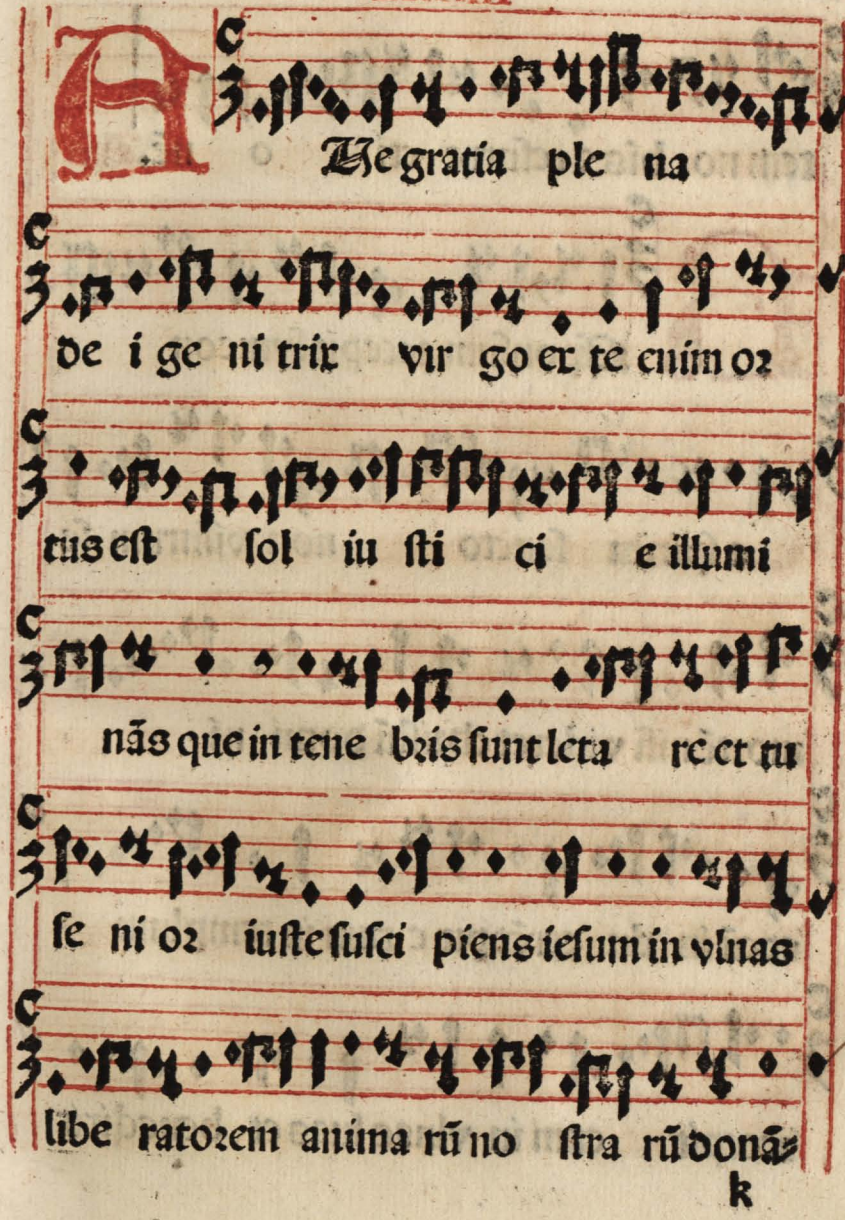 AUe gratia ple na
de i ge ni trix vir go ex te enim oꝛ
tus est sol iu sti ci e illumi
nãs que in tene bꝛis sunt leta re et tu
se ni oꝛ iuste susci piens iesum in vlnas
libe ratoꝛem anima rũ no stra rũ donã⸗
k